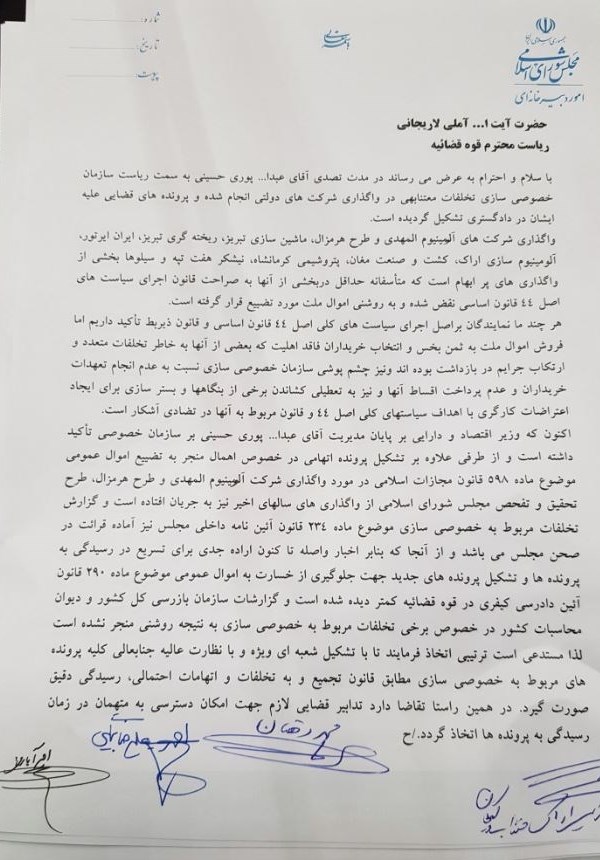 شماره:
تاریخ:
پیوست:
باسمه تعالی
جمهوری اسلامی ایران
مجلس شورای اسلامی
امور دبیرخانه‌ای
حضرت آیت ا... آملی لاریجانی
ریاست محترم قوه قضائیه
با سلام و احترام به عرض می رساند در مدت تصدی آقای عبدا... پوری حسینی به سمت ریاست سازمان
خصوصی سازی تخلفات معتنابهی در واگذاری شرکت های دولتی انجام شده و پرونده های قضایی علیه
ایشان در دادگستری تشکیل گردیده است.
واگذاری شرکت های آلومینیوم المهدی و طرح هرمزال، ماشین سازی تبریز، ریخته گری تبریز، ایران ایرتور،
آلومینیوم سازی اراک، کشت و صنعت مغان، پتروشیمی کرمانشاه، نیشکر هفت تپه و سیلوها بخشی از
واگذاری های پر ابهام است که متأسفانه حداقل دربخشی از آنها به صراحت قانون اجرای سیاست های
اصل ٤٤ قانون اساسی نقض شده و به روشنی اموال ملت مورد تضییع قرار گرفته است.
هر چند ما نمایندگان براصل اجرای سیاست های کلی اصل ٤٤ قانون اساسی و قانون ذیربط تأکید داریم اما
فروش اموال ملت به ثمن بخس و انتخاب خریداران فاقد اهلیت که بعضی از آنها به خاطر تخلفات متعدد و
ارتکاب جرایم در بازداشت بوده اند ونیز چشم پوشی سازمان خصوصی سازی نسبت به عدم انجام تعهدات
خریداران و عدم پرداخت اقساط آنها و نیز به تعطیلی کشاندن برخی از بنگاهها و بستر سازی برای ایجاد
اعتراضات کارگری با اهداف سیاستهای کلی اصل ٤٤ و قانون مربوط به آنها در تضادی آشکار است.
اکنون که وزیر اقتصاد و دارایی بر پایان مدیریت آقای عبدا... پوری حسینی بر سازمان خصوصی تأکید
داشته است و از طرفی علاوه بر تشکیل پرونده اتهامی در خصوص اهمال منجر به تضییع اموال عمومی
موضوع ماده ٥٩٨ قانون مجازات اسلامی در مورد واگذاری شرکت آلومینیوم المهدی و طرح هرمزال، طرح
تحقیق و تفحص مجلس شورای اسلامی از واگذاری های سالهای اخیر نیز به جریان افتاده است و گزارش
تخلفات مربوط به خصوصی سازی موضوع ماده ٢٣٤ قانون آئین نامه داخلی مجلس نیز آماده قرائت در
صحن مجلس می باشد و از آنجا که بنابر اخبار واصله تا کنون اراده جدی برای تسریع در رسیدگی به
پرونده ها و تشکیل پرونده های جدید جهت جلوگیری از خسارت به اموال عمومی موضوع ماده ٢٩٠ قانون
آئین دادرسی کیفری در قوه قضائیه کمتر دیده شده است و گزارشات سازمان بازرسی کل کشور و دیوان
محاسبات کشور در خصوص برخی تخلفات مربوط به خصوصی سازی به نتیجه روشنی منجر نشده است
لذا مستدعی است ترتیبی اتخاذ فرمایند تا با تشکیل شعبه ای ویژه و با نظارت عالیه جنابعالی کلیه پرونده
های مربوط به خصوصی سازی مطابق قانون تجمیع و به تخلفات و اتهامات احتمالی، رسیدگی دقیق
صورت گیرد. در همین راستا تقاضا دارد تدابیر قضایی لازم جهت امکان دسترسی به متهمان در زمان
رسیدگی به پرونده ها اتخاذ گردد./ح